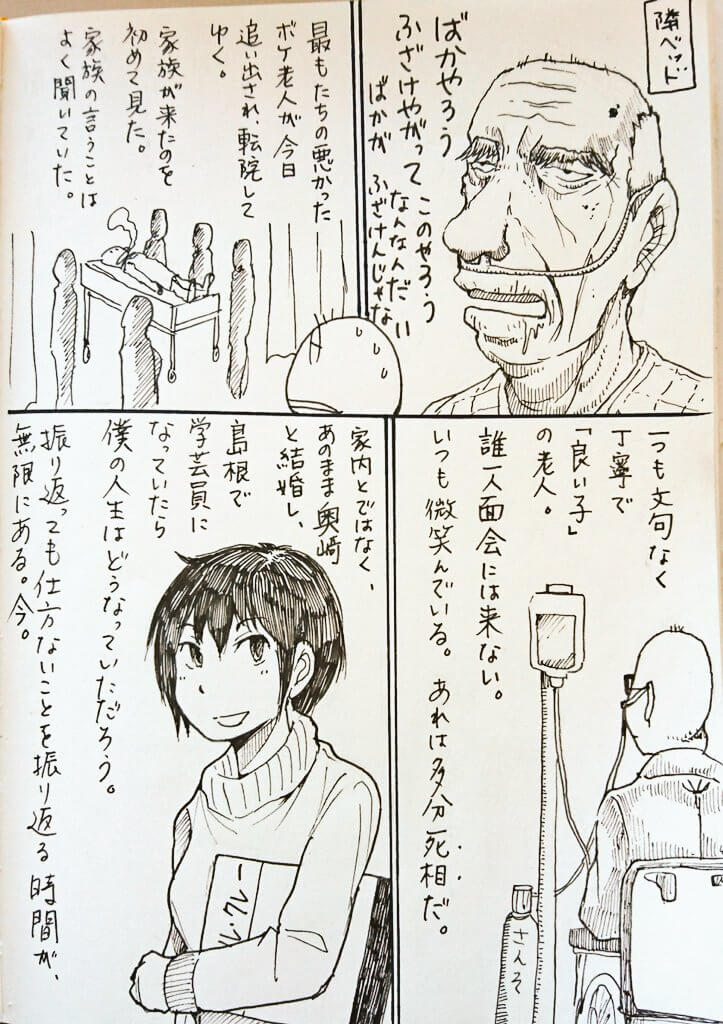 隣ベッド
ばかやろう
ふざけやがって
ばかが
このやろう
なんなんだい
ふざけんじゃな
最もたちの悪かった
ボケ老人が今日
追い出され、転院して
ゆく。
家族が来たのを
初めて見た。
家族の言うことは
よく聞いていた。
一つも文句なく
丁寧で
「良い子」
の老人。
誰一人面会には来ない。
いつも微笑んでいる。あれは多分死相だ。
さんそ
家内とではなく、
あのまま奥崎
と結婚し、
島根で
学芸員に
なっていたら
僕の人生はどうなっていただろう。
振り返っても仕方ないことを振り返る時間が、
無限にある。今。
ル・クレー